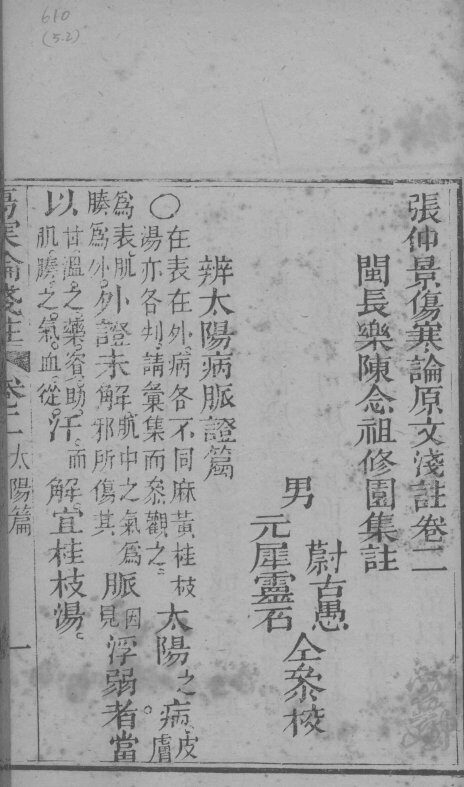 610
(5.2)
張仲景傷寒論原文淺註卷二
閩長樂陳念祖修園集註
男
蔚古愚
元犀靈石
仝叅校
辨太陽病脈證篇
〇在表在外。病各不同。麻黃桂枝湯亦各判。請彙集而叅觀之。太陽之病。皮膚
爲表。肌腠爲外。外證未解。肌中之氣爲邪所傷。其脈因見浮弱者當
以甘溫之藥。資助肌腠之氣血。從汗而解。宜桂枝湯。
傷寒論淺註 卷二 太陽篇 一